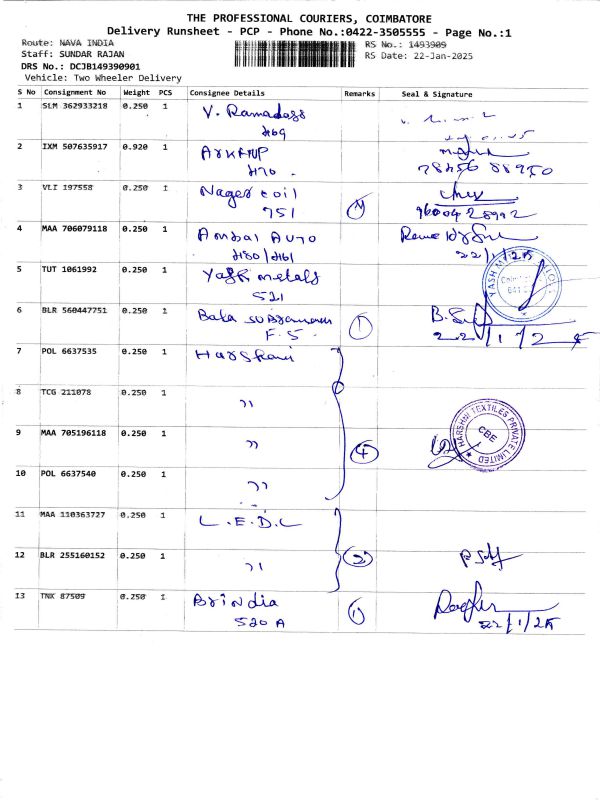 THE PROFESSIONAL COURIERS, COIMBATORE
Delivery Runsheet - PCP - Phone No.:0422-3505555 - Page No.:1
Route: NAVA INDIA RS No.: 1493909
Staff: SUNDAR RAJAN RS Date: 22-Jan-2025
DRS No.: DCJB149390901
Vehicle: Two Wheeler Delivery
S No Consignment No Weight PCS Consignee Details Remarks Seal & Signature
1 SLM 362933218 0.250 1 V. Ramadass
469
2 IXM 507635917 0.920 1
470
3 VLI 197558 0.250 1 Nager coil
751
4 MAA 706079118 0.250 1 Ambal Auto
480/461 22/1/25
5 TUT 1061992 0.250 1 Yash metals
521
6 BLR 560447751 0.250 1 Bala subramani 1
F.S. 22/1/25
7 POL 6637535 0.250 1 Harshani
8 TCG 211078 0.250 1 ,,
HARSHNI TEXTILES PRIVATE LIMITED
CBE
9 MAA 705196118 0.250 1 ,, 4
10 POL 6637540 0.250 1 ,,
11 MAA 110363727 0.250 1 L.E.D.L
12 BLR 255160152 0.250 1 ,, 2
13 TNK 87509 0.250 1 Brindia 1
520 A 22/1/25